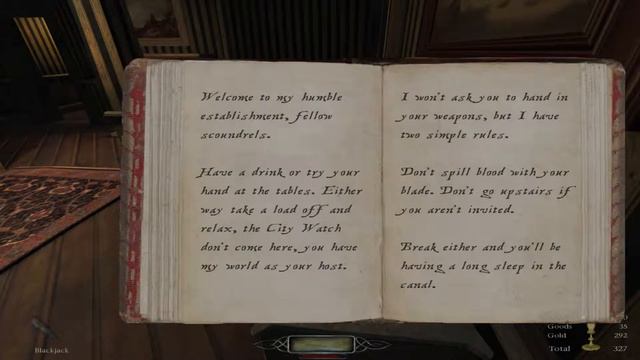 Welcome to my humble
establishment, fellow
scoundrels.
Have a drink or try your
hand at the tables. Either
way take a load off and
relax, the City Watch
don't come here, you have
my world as your host.
I won't ask you to hand in
your weapons, but I have
two simple rules.
Don't spill blood with your
blade. Don't go upstairs if
you aren't invited.
Break either and you'll be
having a long sleep in the
canal.
Goods 35
Gold 292
Total 327
Blackjack